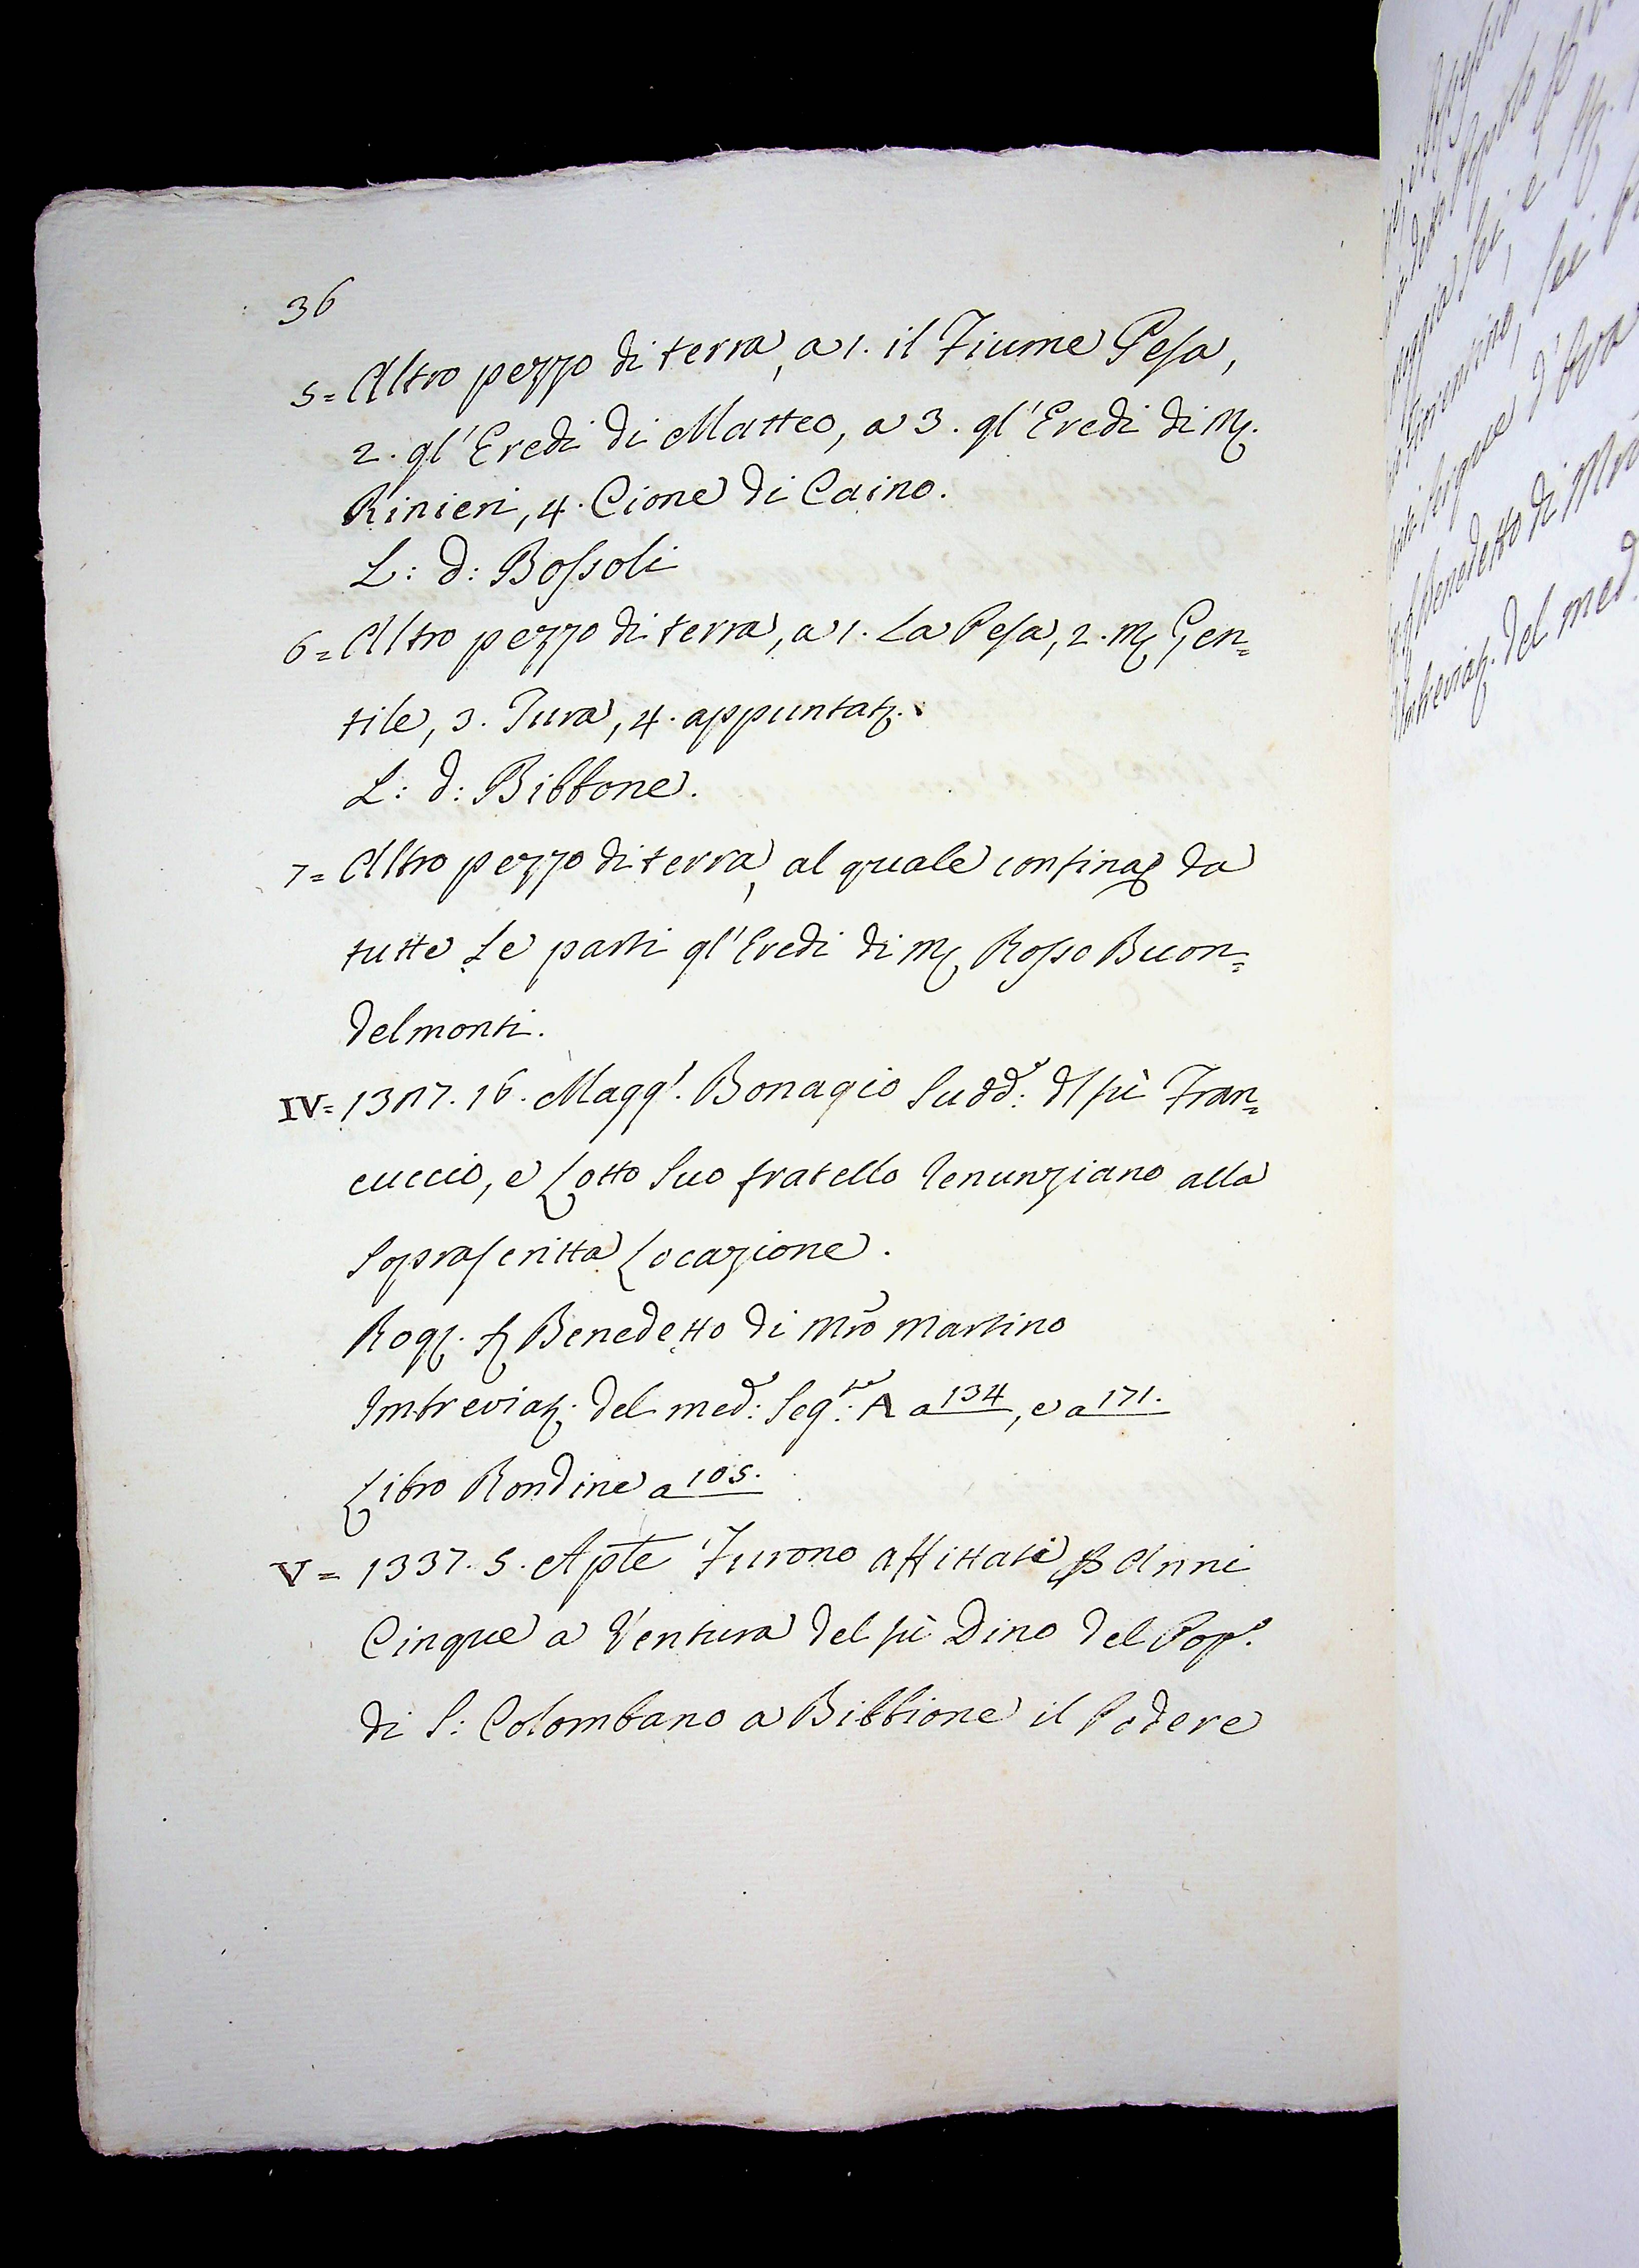 36
5= Altro pezzo di terra, a 1. il Fiume Pesa,
2. gl'Eredi di Matteo, a 3. gl'Eredi di M.
Rinieri, 4. Cione di Caino.
L: d: Bossoli
6= Altro pezzo di terra, a 1. La Pesa, 2. M. Gen=
tile, 3. Jura, 4. appuntat.
L: d: Bibbone.
7= Altro pezzo di terra, al quale confina da
tutte Le parti gl'Eredi di M. Rosso Buon=
delmonti.
IV= 16. Magg. Bonagio Sudd: d fù Fran=
cuccio, e Lotto Suo fratello renunziano alla
Soprascritta Locazione.
Rog. S. Benedetto di Mro Martino
Imbreviaz. del med: Seg: A a 134, e a 171.
Libro Rondine a 105.
V= 1337. 5. Aple Furono affittati p Anni
Cinque a Ventura del fù Dino del Pop.
di S: Colombano a Bibbione il Podere
Benedetto di Mro
Imbreviaz. del med.